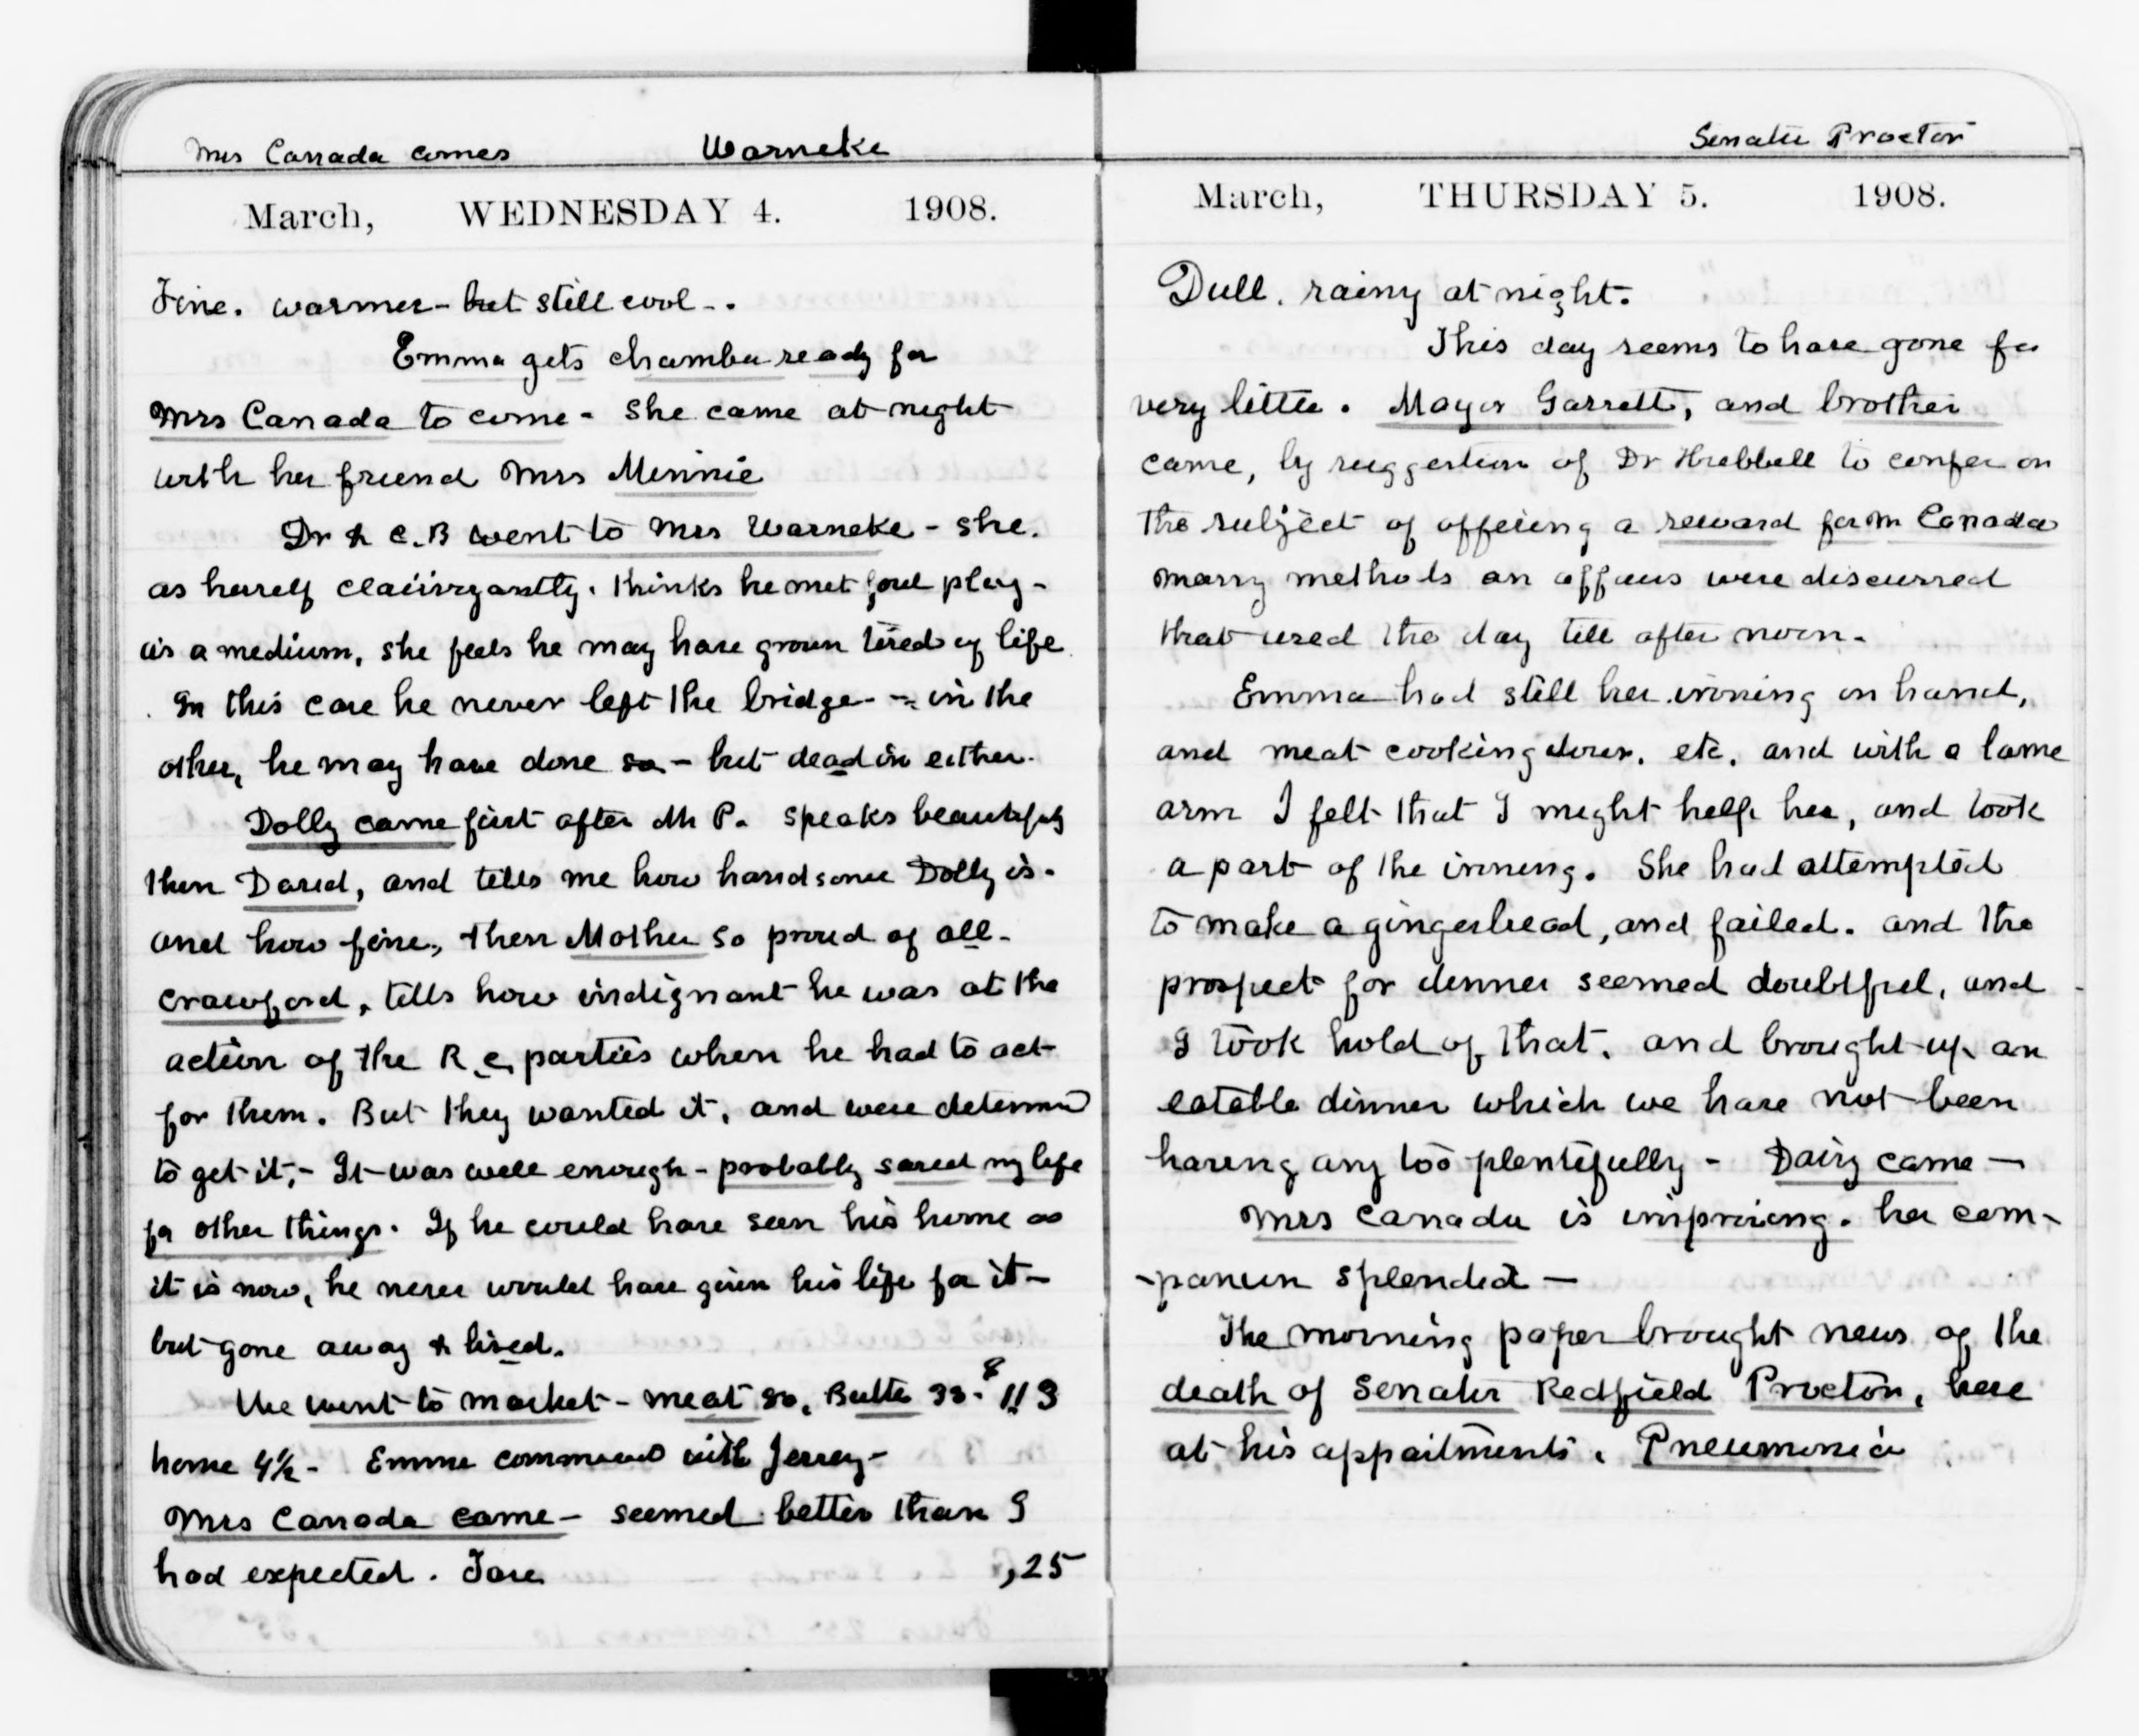 Mrs Canada comes Warneke
March, WEDNESDAY 4. 1908.
Fine. warmer - but still cool - .
Emma gets chamber ready for
Mrs Canada to come - She came at night
with her friend Mrs Minnie
Dr & C.B went to Mrs Warneke - she.
as herself thinks he met foul play -
as a medium, she feels he may have grown tired of life
In this case he never left the bridge - - in the
other, he may have done so - but dead in either.
Dolly came first after P. speaks beautifuly
then David, and tells me how handsome Dolly is.
and how fine, then Mother so proud of all -
Crawford, tells how indignant he was at the
action of the R.C. parties when he had to act
for them. But they wanted it, and were
to get it, - It was well enough - probably saved my life
for other things. If he could have seen his home as
it is now, he never would have given his life for it -
but gone away & lived.
We went to market - meat 80, Butter 33.
home 4½ - Emma with Jerrey -
Mrs Canada came - seemed better than I
had expected. Fare ,25
Senator Proctor
March, THURSDAY 5. 1908.
Dull. rainy at night.
This day seems to have gone for
very little. Mayor Garrett, and brother
came, by suggestion of Dr Hubbell to confer on
the subject of offering a reward for Mr Canada
many methods an affairs were discussed
that used the day till after noon.
Emma had still her ironing on hand,
and meat cooking down, etc, and with a lame
arm I felt that I might help her, and took
a part of the ironing. She had attempted
to make a gingerbread, and failed. and the
prospect for dinner seemed doubtful, and
I took hold of that, and brought up an
eatable dinner which we have not been
having any too plentifully - Dairy came -
Mrs Canada is improving. her com-
-panion splended -
The morning paper brought news of the
death of Senator Redfield Procton, here
at his appaitments. Pneumonia